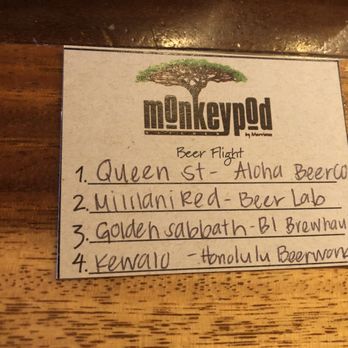 monkeypod
KITCHEN by Merriman
Beer Flight
1. Queen St - Aloha BeerCo
2. Mililani Red - Beer Lab
3. Golden Sabbath - BI Brewhau
4. Kewalo - Honolulu Beerwor